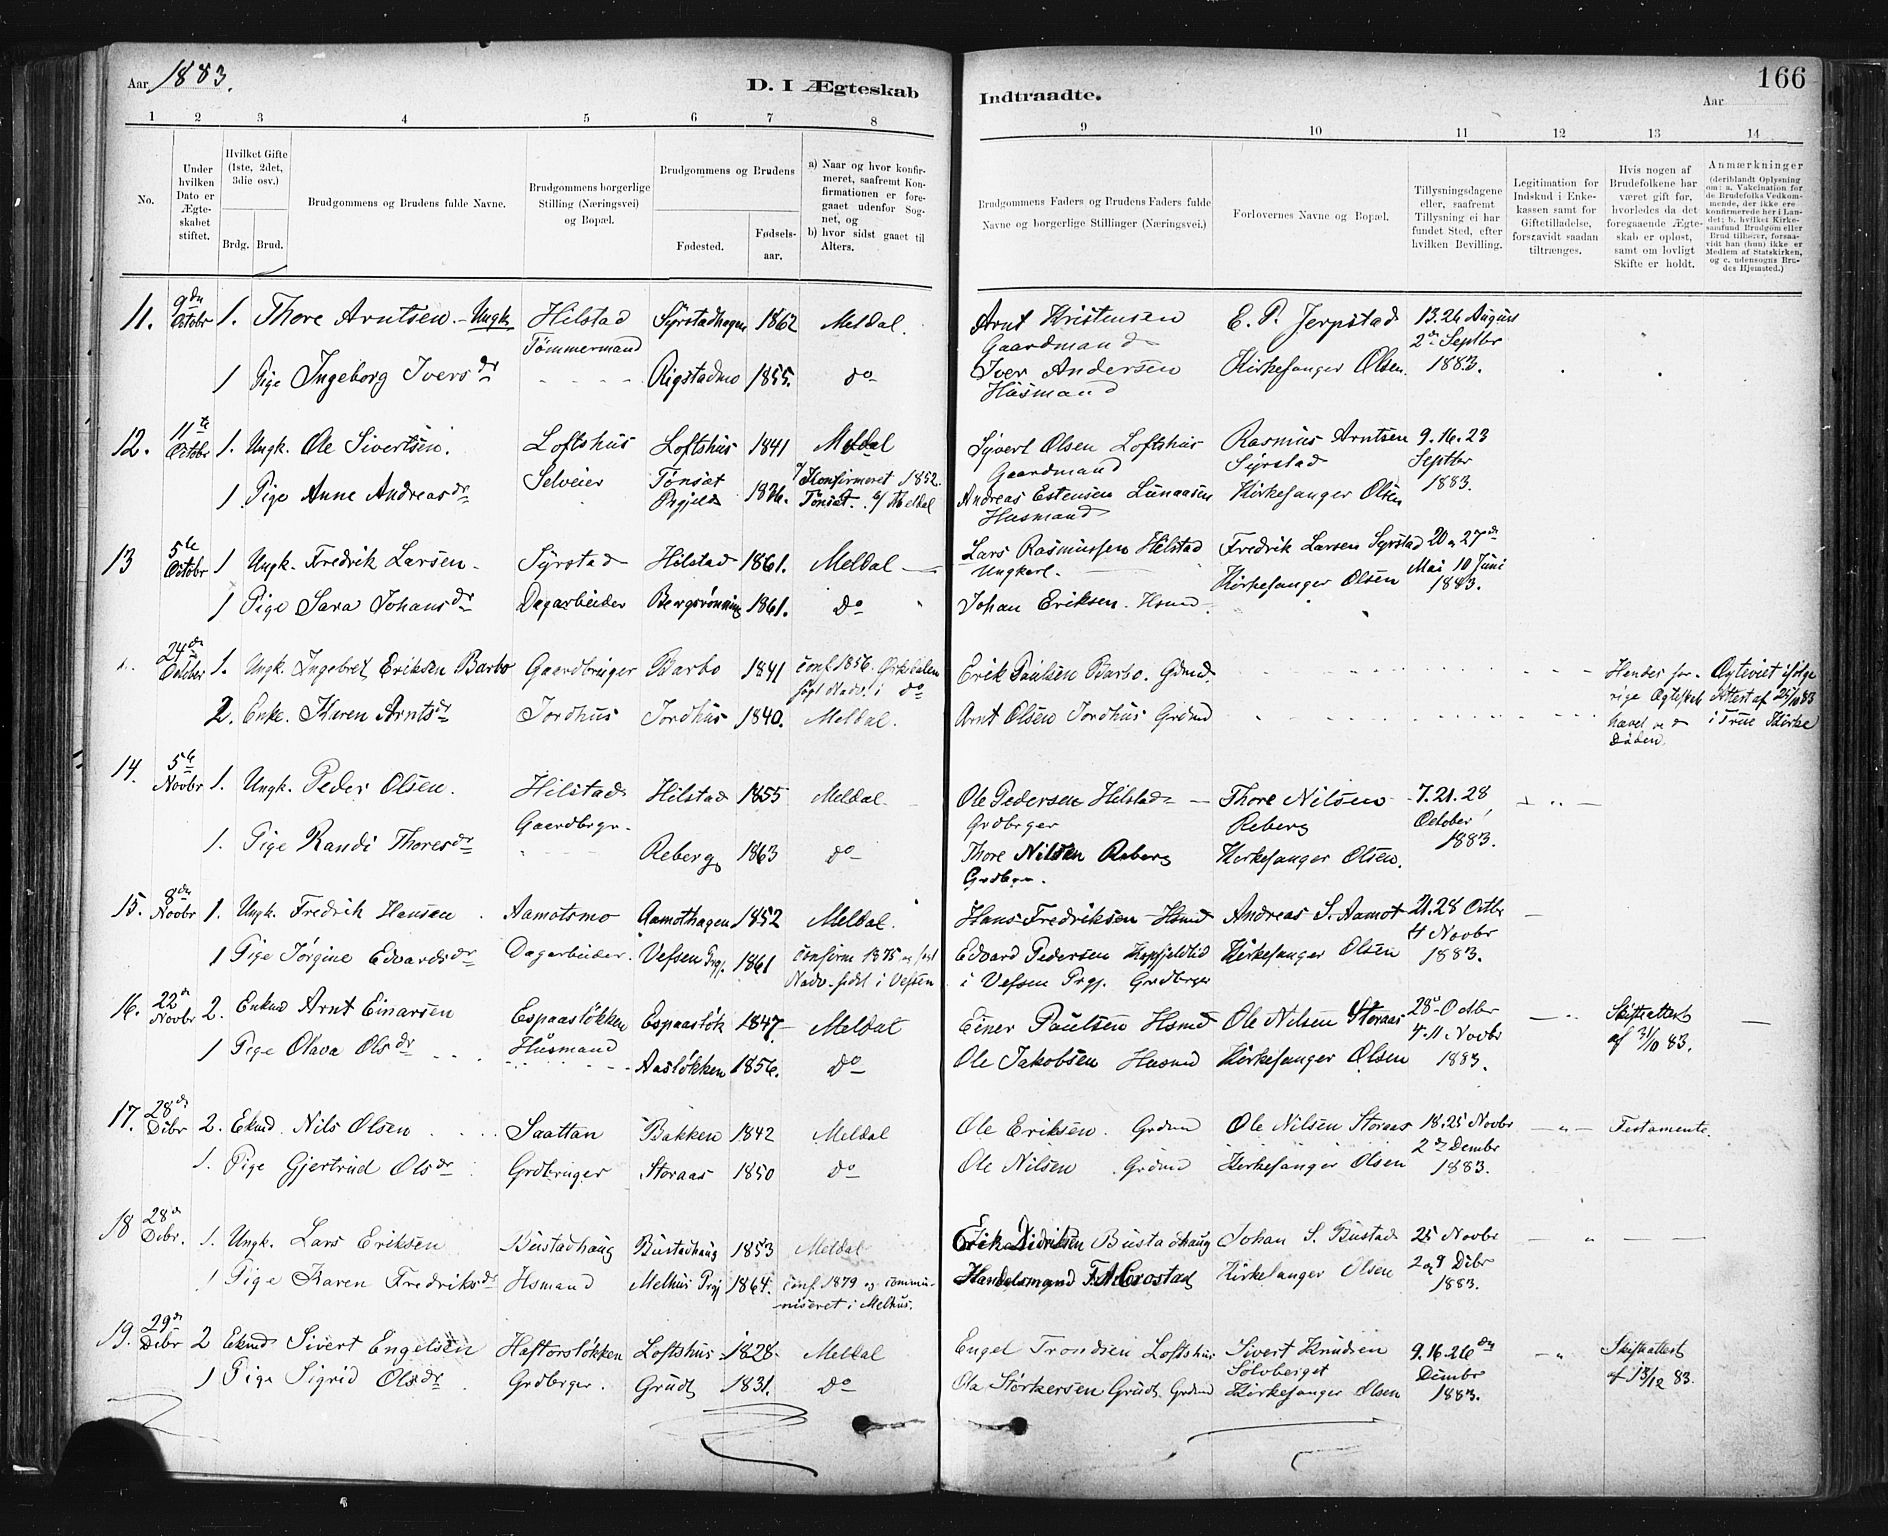 Aar 1883.
D. I Ægteskab Indtraadte.
Aar
166
1 2 3 4 5 6 7 8 9 10 11 12 13 14
No.
Under hvilken Dato er Ægteskabet stiftet.
Hvilket Gifte (1ste, 2det, 3die osv.)
Brdg. Brud.
Brudgommens og Brudens fulde Navne.
Brudgommens borgerlige Stilling (Næringsvei) og Bopæl.
Brudgommens og Brudens
Fødested.
Fødselsaar.
a) Naar og hvor konfirmeret, saafremt Konfirmationen er foregaaet udenfor Sognet, og
b) hvor sidst gaaet til Alters.
Brudgommens Faders og Brudens Faders fulde Navne og borgerlige Stillinger (Næringsvei.)
Forlovernes Navne og Bopæl.
Tillysningsdagene eller, saafremt Tillysning ei har fundet Sted, efter hvilken Bevilling.
Legitimation for Indskud i Enkekassen samt for Giftetilladelse, forsaavidt saadan tiltrænges.
Hvis nogen af Brudefolkene har været gift før, hvorledes da det foregaaende Ægteskab er opløst, samt om lovligt Skifte er holdt.
Anmærkninger (deriblandt Oplysning om: a. Vakcination for de Brudefolks Vedkommende, der ikke ere konfirmerede her i Landet; b. hvilket Kirkesamfund Brudgom eller Brud tilhører, forsaavidt han (hun) ikke er Medlem af Statskirken, og c. udensogns Brudes Hjemsted.)
11. 9de Octobr 1. Thore Arntsen - Ungk. Hilstad Syrstadhagen 1862 Meldal. Arnt Kristensen E. P. Jerpstad 13. 26 August
Tømmermand Gaardmand 2de Septbr
1 Pige Ingeborg Iversdr Rigstadmo 1855. do Iver Andersen Kirkesanger Olsen. 1883.
Husmand
12. 11te Octobr 1. Ungk. Ole Sivertsen. Loftshus Loftshus 1841 Meldal Syvert Olsen Loftshus Rasmus Arntsen 9. 16. 23
Gaardmand Syrstad Septbr
1 Pige Anne Andreasdr Selveier Tønset Prgjeld 1836. a/ Konfirmeret 1852. Tønset. b/ Meldal Andreas Estensen Kirkesanger Olsen 1883.
Husmand
13 5te Octobr 1 Ungk. Fredrik Larsen - Syrstad Hilstad 1861. Meldal Lars Rasmussen Hilstad Fredrik Larsen Syrstad 20 og 27de
Ungkarl. Mai 10 Juni
1 Pige Sara Johansdr Dagarbeider Bergsrønning 1861. do Johan Eriksen. Hsmd. Kirkesanger Olsen 1883.
24de October 1. Ungk. Ingebret Eriksen Barbo Gaardbruger Barbo 1841 conf. 1856. Orkedalen Erik Paulsen Barbo. Gdmd. Hendes for- Ægteviet ifølge
søgt Nadv. i do rige Ægteskab Attest af 25/10 83
2. Enke. Karen Arntsdr Jordhus Jordhus 1840. Meldal. Arnt Olsen Jordhus Grdmd hævet ved i Trøe Kirke
Døden.
14. 5te Novbr 1. Ungk. Peder Olsen. Hilstad Hilstad 1855 Meldal. Ole Pedersen Hilstad Thore Nilsen 7. 21. 28
Gaardbrgr. Grdbrger Reberg October
1. Pige Randi Thoresdr Reberg 1863 do Thore Nilsen Reberg Kirkesanger Olsen. 1883.
Grdbrgr.
15. 8de Novbr 1. Ungk. Fredrik Hansen Aamotsmo Aamothagen 1852 Meldal. Hans Fredriksen Hsmd Andreas S. Aamot 21. 28 Octbr
4 Novbr
1 Pige Jørgine Edvardsdr Dagarbeider. Vefsen Prgj. 1861 confirm 1875 og søgt Edvard Pedersen Kirkesanger Olsen 1883.
Nadv. sidst i Vefsen i Vefsen Prgj. Grdbrger
16. 22de Novbr 2. Enkmd Arnt Einarsen Espaasløkken Espaasløk 1847. Meldal Einer Paulsen Hsmd Ole Nilsen Storaas 28de Octbr Skifteattest
Husmand 4. 11. Novbr af 31/10 83.
1 Pige Olava Olsdr Aasløkken 1856. do Ole Jakobsen Husmd Kirkesanger Olsen 1883.
17. 28de Dcbr 2. Ekmd. Nils Olsen Saattan Bakken 1842 Meldal Ole Eriksen. Grdmd Ole Nilsen Storaas 18. 25 Novbr Testamente.
2de Decmbr
1. Pige Gjertrud Olsdr Grdbruger Storaas 1850 do Ole Nilsen Grdmd Kirkesanger Olsen 1883.
18 28de Dcbr. 1. Ungk. Lars Eriksen Bustadhaug Bustadhaug 1853 Meldal Erik Didriksen Bustadhaug Johan S. Bustad 25 Novbr
1 Pige Karen Fredriksdr Hsmand Melhus Prgj 1864. conf. 1879 og commu- Handelsmand Kirkesanger Olsen 2 og 9 Dcbr
niceret i Melhus. 1883.
19. 29de Dcbr 2 Ekmd Sivert Engelsen Haftorsløkken Loftshus 1828. Meldal Engel Trondsen Loftshus Sivert Knudsen 9. 16. 26de Skifteattest
Sølvberget Dcmbr af 13/12 83.
1 Pige Sigrid Olsdr Grdbrger. Grudt 1831. do Ola Størkersen Grudt. Grdmd Kirkesanger Olsen 1883.